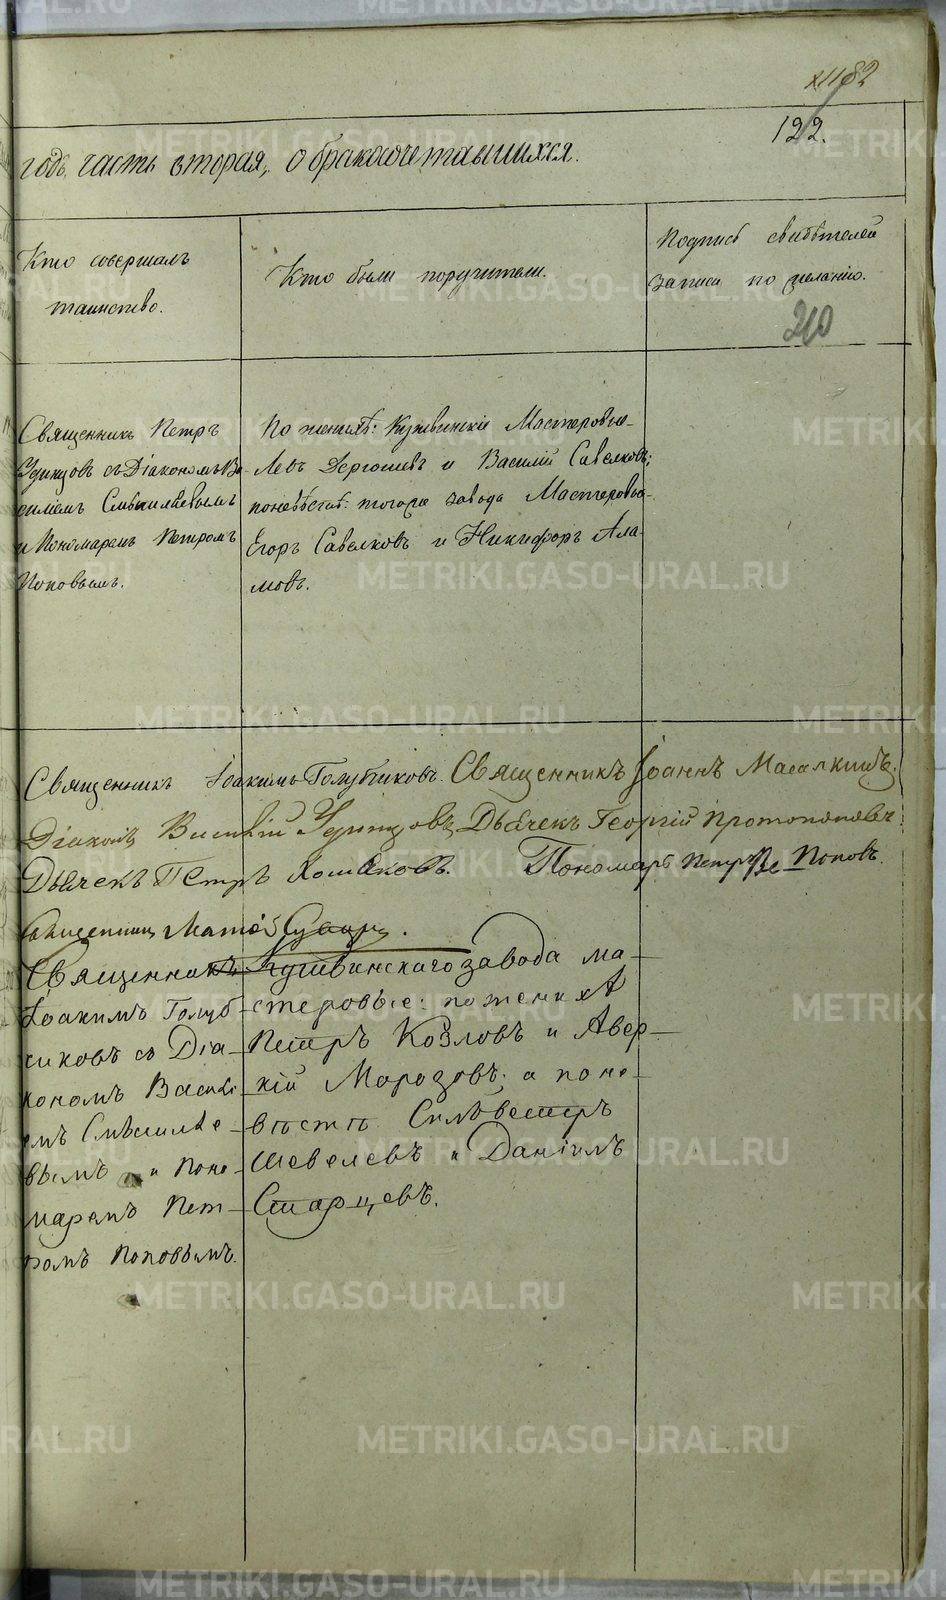 1182
122.
годъ, часть вторая, о бракосочетавшихся.
Кто совершалъ
таинство.
Кто были поручители.
Подпись свидѣтелей
записи по желанію.
210
Священникъ Петръ
Удинцовъ съ Діакономъ Ва-
силіемъ Смышляевымъ
и Пономаремъ Петромъ
Поповымъ.
По женихѣ: Кушвинскіе Мастеровые
Левъ и Василій Савелковъ;
по невѣстѣ: тогоже завода Мастеровые
Егоръ Савелковъ и Никифоръ Ала-
мовъ.
Священникъ Іоакимъ Голубчиковъ. Священникъ Іоаннъ
Діаконъ Удинцовъ, Дьячекъ Георгій Протопоповъ
Дьячекъ Петръ Хомяковъ. Пономарь Петръ Поповъ.
Священникъ
Священникъ
Іоакимъ Голуб-
чиковъ съ Діа-
кономъ Василі-
емъ Смышляе-
вымъ и Поно-
маремъ Пет-
ромъ Поповымъ.
Кушвинскаго завода ма-
стеровые: по женихѣ
Петръ Козловъ и Авер-
кій Морозовъ; а по не-
вѣстѣ Сильвестръ
Шевелевъ и Даніилъ
Старцевъ.
METRIKI.GASO-URAL.RU